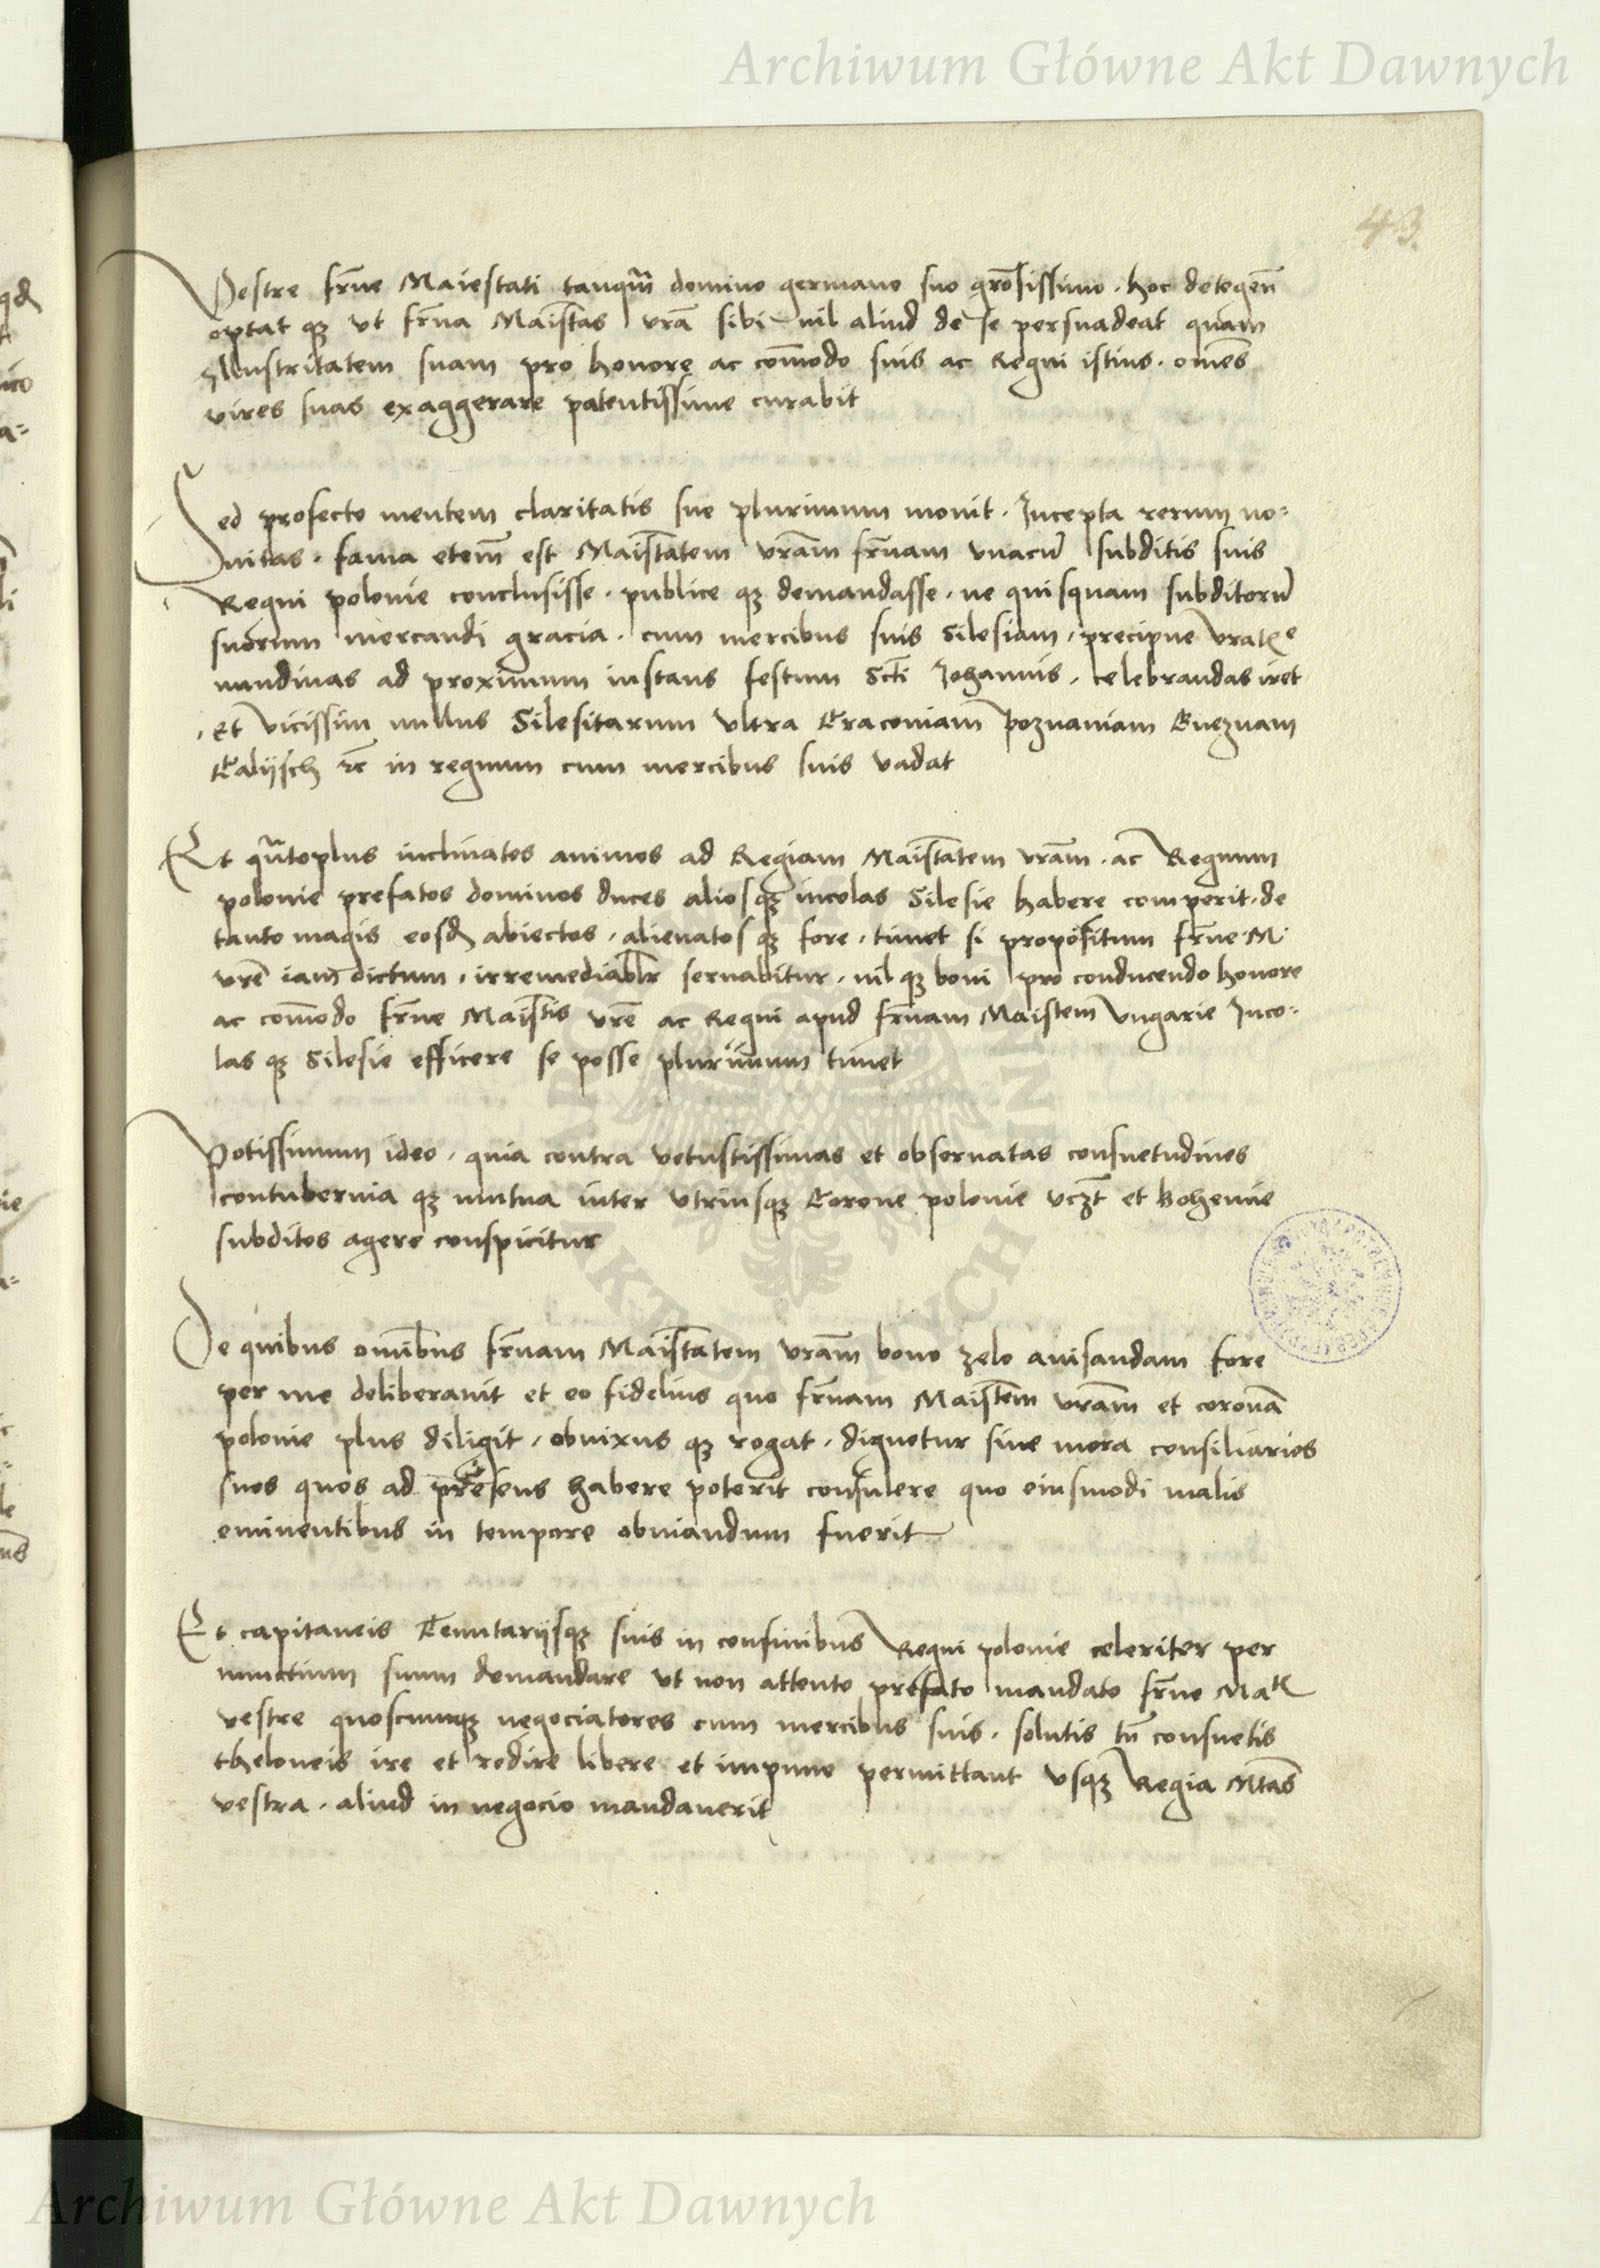 Archiwum Główne Akt Dawnych
43.
Vestre srme Maiestati tanqm̄ domino germano suo grōsissimo · hoc detegen̄
optat qʒ ut srma Maistas vrā sibi nil aliud de se persuadeat quam
Illustritatem suam pro honore ac com̄odo suis ac Regni istius · om̄es
vires suas exaggerare patentissime curabit
Sed profecto mentem claritatis sue plurimum mouit · Incepta rerum no-
uitas · fama etem̄ est Maistatem vrām srmam vnacū subditis suis
Regni polonie conclusisse · publice qʒ demandasse · ne quisquam subditorū
suorum mercandi gracia · cum mercibus suis Silesiam · precipue vratꝭe
nundinas ad proximum instans festum Scti Johannis · celebrandas iret
Et vicissim nullus Silesitarum vltra Craconiam Poznaniam Gneznam
Calijsch ꝛc in regnum cum mercibus suis vadat
Et qn̄toplus inclinatos animos ad Regiam Maistatem vrām · ac Regnum
polonie prefatos dominos duces aliosqʒ incolas Silesie habere comperit · de
tanto magis eosd abiectos · alienatosqʒ fore · timet si propositum srme M.
vrē iam dictum · irremediablr seruabitur · nil qʒ boni pro conducendo honore
ac com̄odo srme Maistis vrē ac Regni apud srmam Maistem Vngarie Inco-
las qʒ Silesie efficere se posse plurimum timet
Potissimum ideo · quia contra vetustissimas et obseruatas consuetudines
contubernia qʒ mutua inter vtriusqʒ Corone polonie vczt et Bohemie
subditos agere conspicitur
De quibus omībus srmam Maistatem vrām bono zelo auisandam fore
per me deliberauit et eo fidelius quo srmam Maistem vrām et coronā
polonie plus diligit · obnixus qʒ rogat · dignetur sine mora consiliarios
suos quos ad presens habere poterit consulere quo eiusmodi malis
eminentibus in tempore obuiandum fuerit
Et capitaneis Tenutarijsqʒ suis in confinibus Regni polonie celeriter per
nunctium suum demandare vt non attento prefato mandato srme Matꝭ
vestre quoscumqʒ negociatores cum mercibus suis · solutis tn̄ consuetis
theloneis ire et redire libere et impune permittant vsqʒ Regia Mtas
vestra · aliud in negocio mandauerit
Archiwum Główne Akt Dawnych